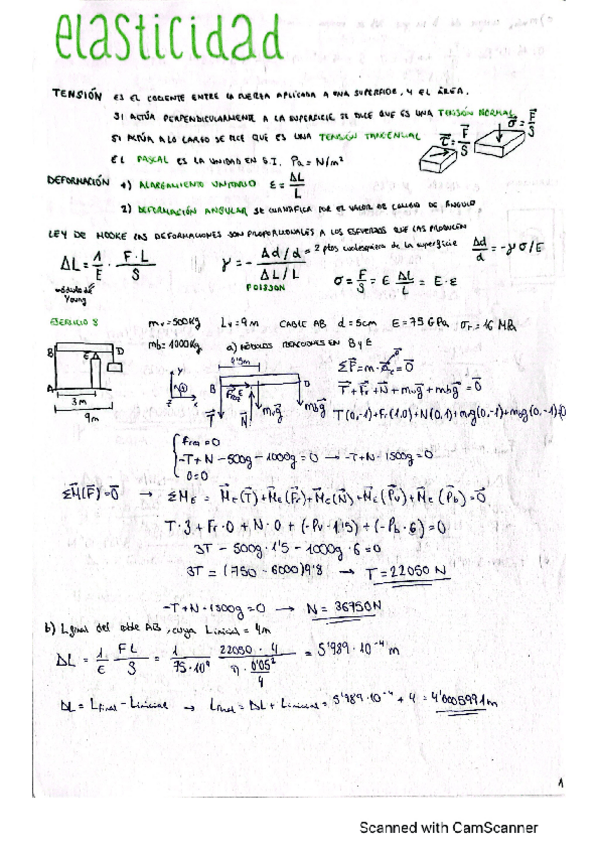 elasticidad
TENSIÓN ES EL COCIENTE ENTRE LA FUERZA APLICADA A UNA SUPERFICIE, Y EL ÁREA.
SI ACTÚA PERPENDICULARMENTE A LA SUPERFICIE SE DICE QUE ES UNA TENSIÓN NORMAL σ = F/S
SI ACTÚA A LO LARGO SE DICE QUE ES UNA TENSIÓN TANGENCIAL τ = F/S
EL PASCAL ES LA UNIDAD EN S.I. Pa = N/m²
DEFORMACIÓN 1) ALARGAMIENTO UNITARIO ε = ΔL/L
2) DEFORMACIÓN ANGULAR SE CUANTIFICA POR EL VALOR DE CAMBIO DE ÁNGULO
LEY DE HOOKE LAS DEFORMACIONES SON PROPORCIONALES A LOS ESFUERZOS QUE LAS PRODUCEN
ΔL = 1/E · F·L/S γ = - Δd/d / ΔL/L = 2 ptos cualesquiera de la superficie Δd/d = -γ σ/E
módulo de Young POISSON σ = F/S = E ΔL/L = E·ε
EJERCICIO 8 mv = 500kg Lv = 9m CABLE AB d = 5cm E = 75 GPa, σr = 16 MPa
mb = 1000kg a) MÓDULOS REACCIONES EN B y E
B E D A 3m 9m
Y X Z
4'5m B E D Fr T N mvg mbg
ΣF = m·a = 0
T + Fr + N + mvg + mbg = 0
T(0,-1)+Fr(1,0)+N(0,1)+mvg(0,-1)+mbg(0,-1)=0
Fr = 0
-T+N-500g-1000g = 0 → -T+N-1500g = 0
0=0
ΣM(F)=0 → ΣME = ME(T)+ME(Fr)+ME(N)+ME(Pv)+ME(Pb) = 0
T·3 + Fr·0 + N·0 + (-Pv·1'5) + (-Pb·6) = 0
3T - 500g·1'5 - 1000g·6 = 0
3T = (750 - 6000)9'8 → T = 22050 N
-T+N-1500g = 0 → N = 36750N
b) Lfinal del cable AB, cuya Linicial = 4m
ΔL = 1/E FL/S = 1/75·10⁹ 22050·4 / π·0'05²/4 = 5'989·10⁻⁴ m
ΔL = Lfinal - Linicial → Lfinal = ΔL + Linicial = 5'989·10⁻⁴ + 4 = 4'0005991m
1
Scanned with CamScanner